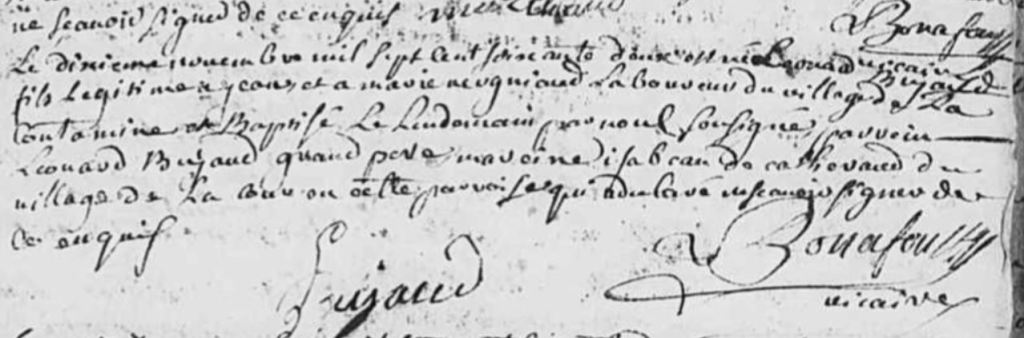 ne sçavoir signer de ce enquis
Bonafoux
vicaire
Le dixieme novembre mil sept cent soixante douze est né Leonard Bujaud
fils legitime a jean et a marie laboureurs du village de La
Contamine et Baptisé Le Lendemain par nous soussigné parrein
Leonard Bujaud grand pere mareine isabeau de du
village de La cour en cette parroisse qui a declaré ne sçavoir signer de
ce enquis
Bujaud
Bonafoux
vicaire